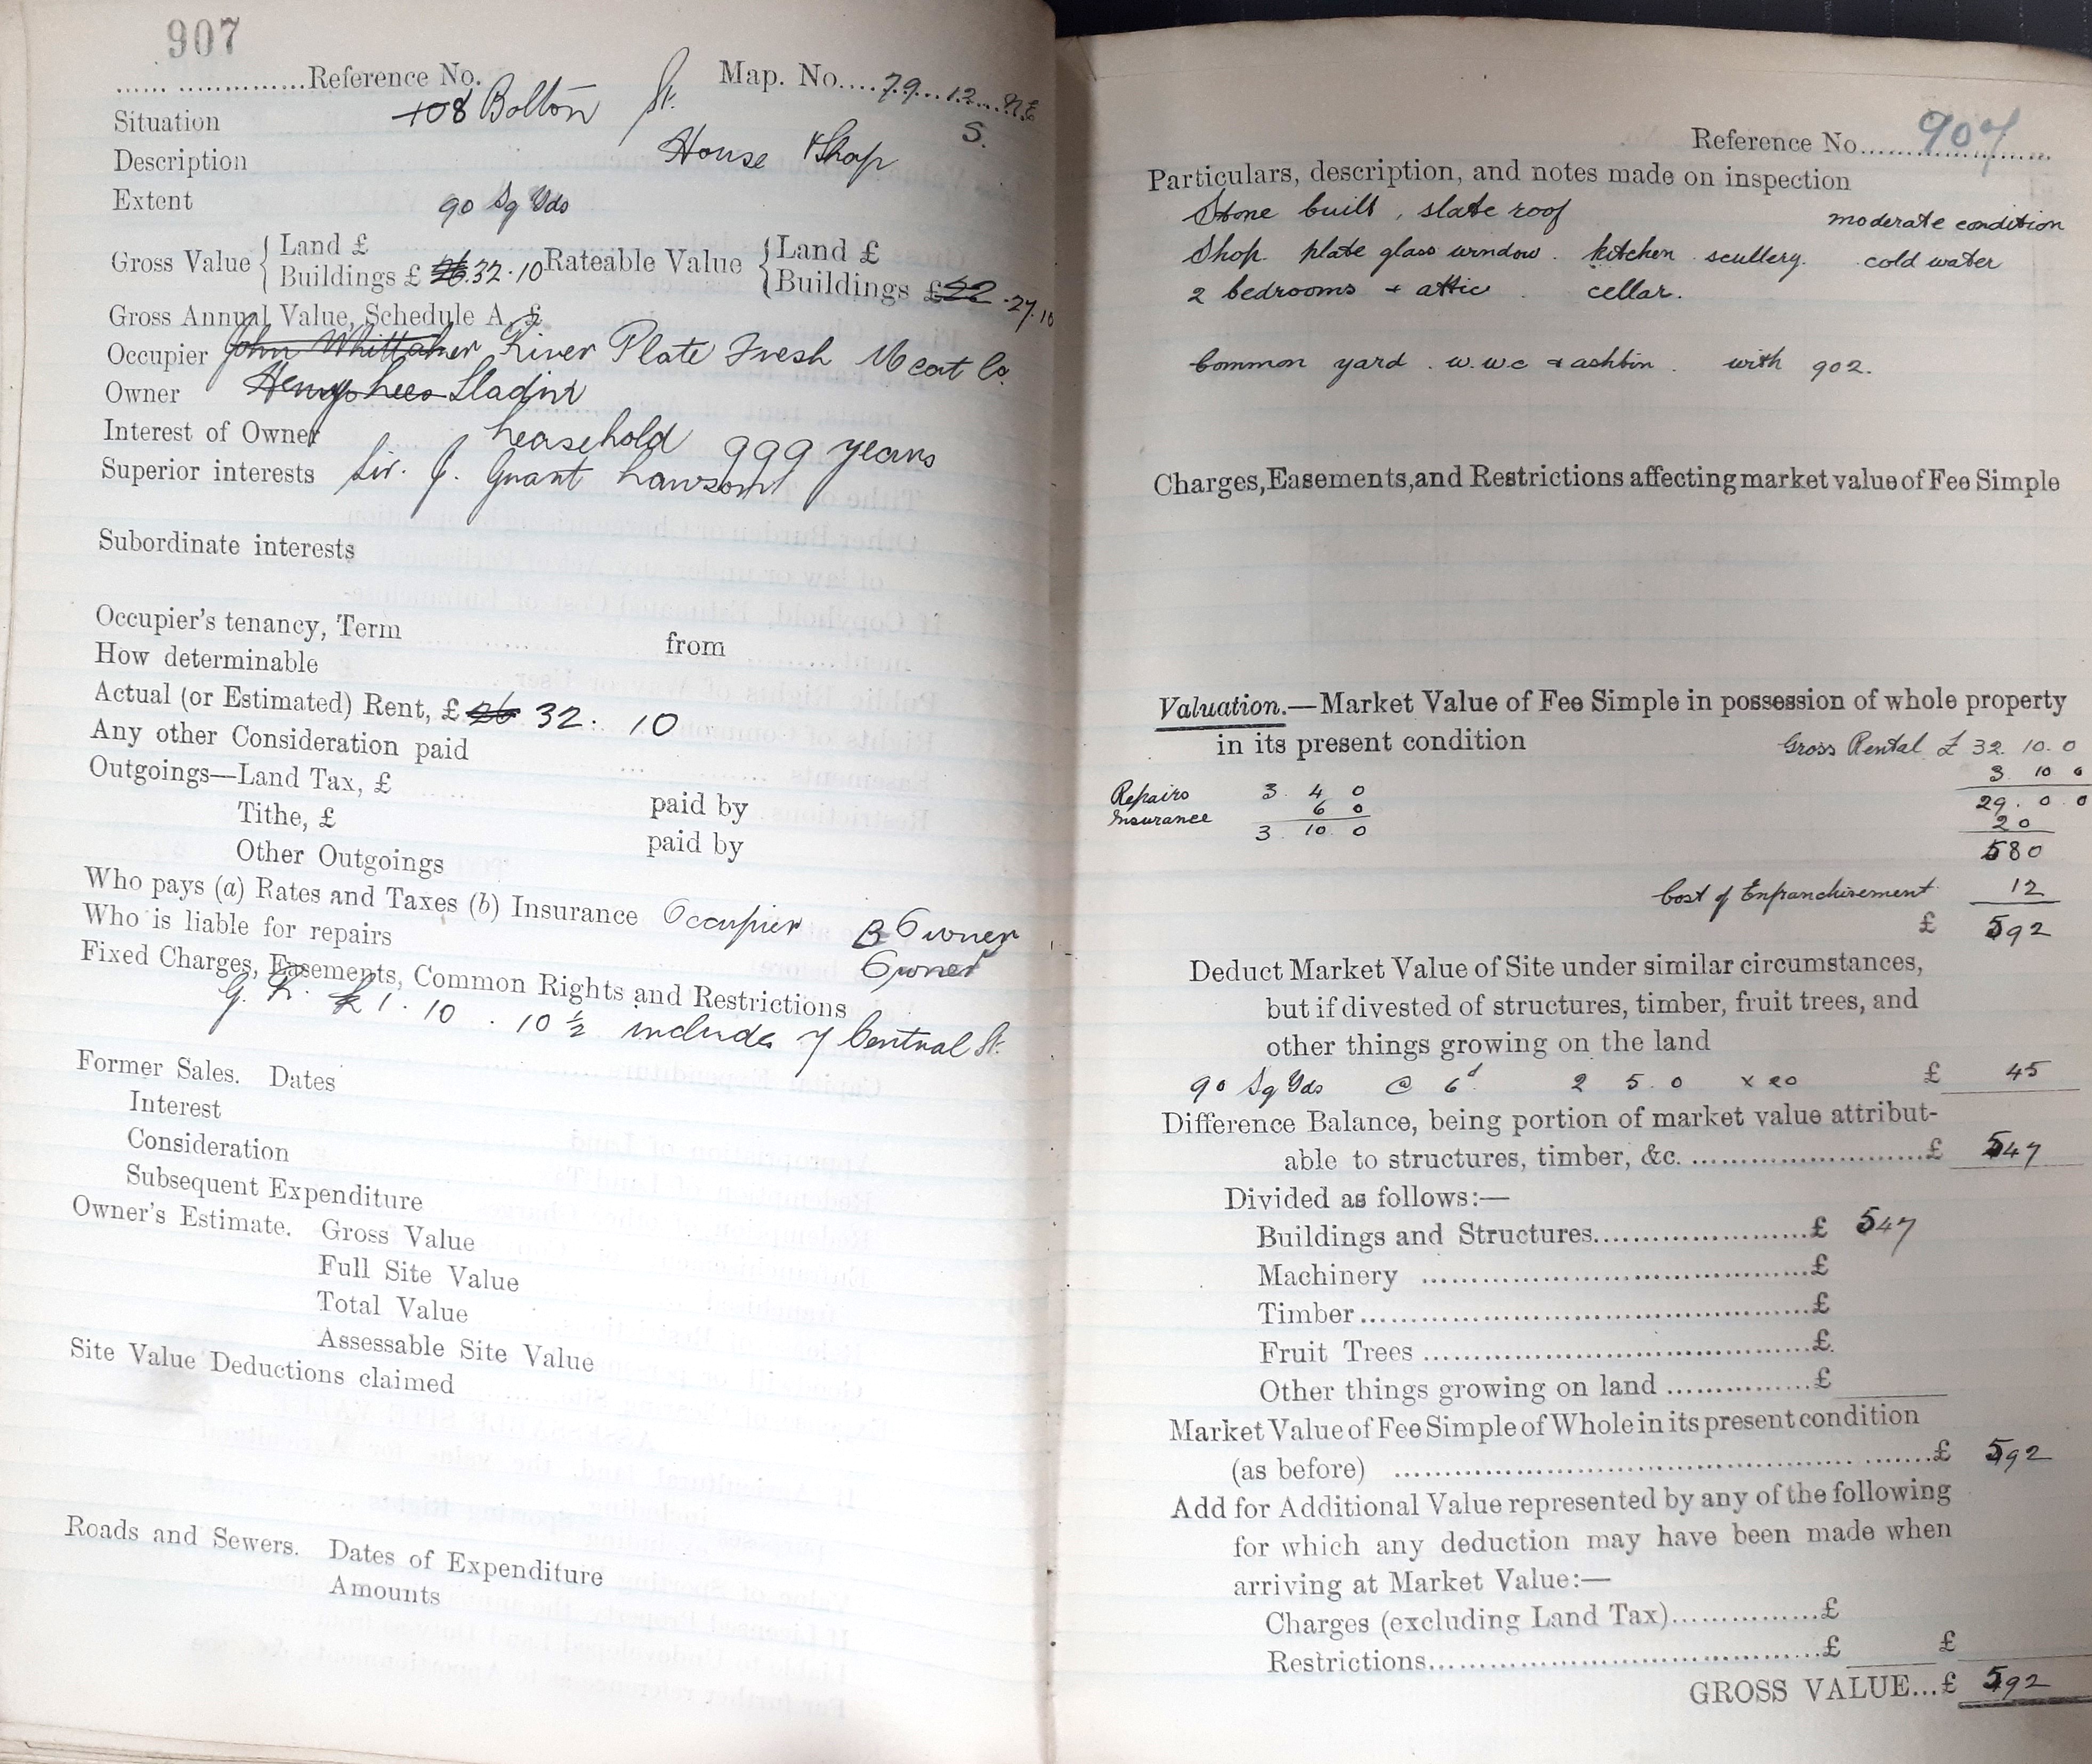 907
Reference No. Map. No....79...12...N.E
S.
Situation 108 Bolton St.
Description House & Shop
Extent 90 Sq Yds
Gross Value { Land £ Rateable Value { Land £
Buildings £ 26 32.10 Buildings £22.27.10
Gross Annual Value, Schedule A, £
Occupier John Whittaker River Plate Fresh Meat Co.
Owner Henry Lees Sladin
Interest of Owner Leasehold 999 years
Superior interests Sir. J. Grant Lawson
Subordinate interests
Occupier's tenancy, Term from
How determinable
Actual (or Estimated) Rent, £ 26 32: 10
Any other Consideration paid
Outgoings—Land Tax, £ paid by
Tithe, £ paid by
Other Outgoings
Who pays (a) Rates and Taxes (b) Insurance Occupier B Owner
Who is liable for repairs Owner
Fixed Charges, Easements, Common Rights and Restrictions
G. R. £1.10.10½ includes 7 Central St.
Former Sales. Dates
Interest
Consideration
Subsequent Expenditure
Owner's Estimate. Gross Value
Full Site Value
Total Value
Assessable Site Value
Site Value Deductions claimed
Roads and Sewers. Dates of Expenditure
Amounts
Reference No. 907
Particulars, description, and notes made on inspection
Stone built, slate roof moderate condition
Shop. plate glass window. kitchen. scullery. cold water
2 bedrooms + attic. cellar.
Common yard. w.w.c & ashbin. with 902.
Charges, Easements, and Restrictions affecting market value of Fee Simple
Valuation.—Market Value of Fee Simple in possession of whole property
in its present condition Gross Rental £ 32. 10. 0
3 10 0
Repairs 3. 4 0 29. 0 0
Insurance 6 0 20
3. 10. 0 580
Cost of Enfranchisement 12
£ 592
Deduct Market Value of Site under similar circumstances,
but if divested of structures, timber, fruit trees, and
other things growing on the land
90 Sq Yds @ 6d 2 5. 0 x 20 £ 45
Difference Balance, being portion of market value attribut-
able to structures, timber, &c. £ 547
Divided as follows:—
Buildings and Structures £ 547
Machinery £
Timber £
Fruit Trees £
Other things growing on land £
Market Value of Fee Simple of Whole in its present condition
(as before) £ 592
Add for Additional Value represented by any of the following
for which any deduction may have been made when
arriving at Market Value:—
Charges (excluding Land Tax) £
Restrictions £ £
GROSS VALUE...£ 592